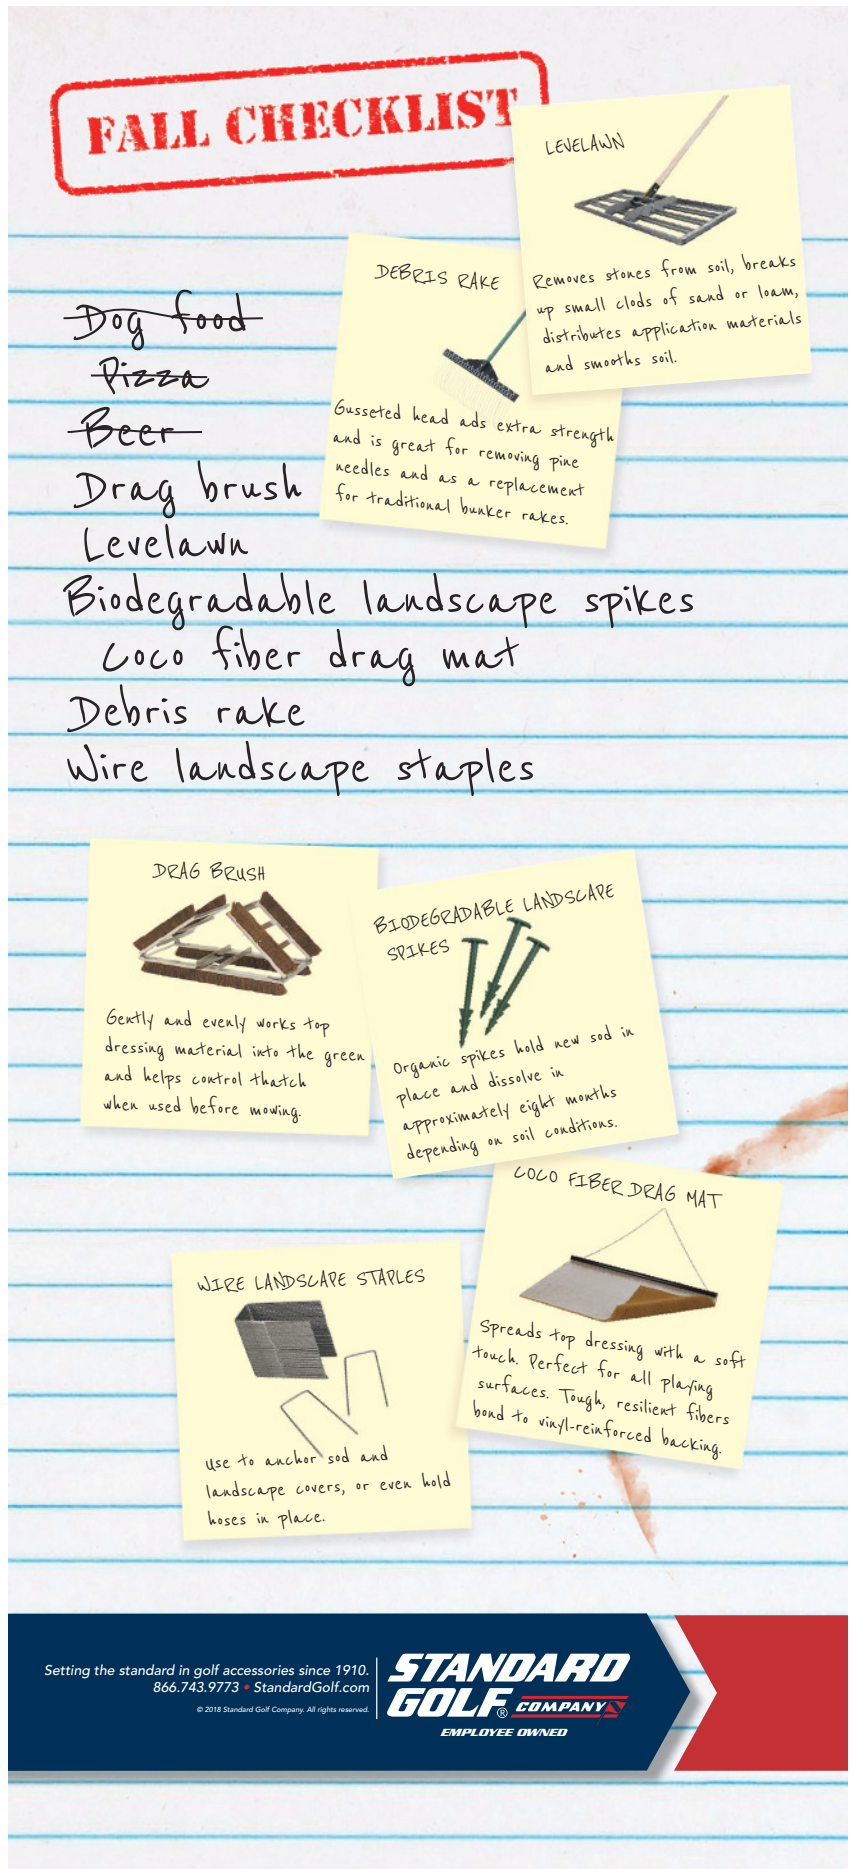 FALL CHECKLIST
LEVELAWN
Removes stones from soil, breaks
up small clods of sand or loam,
distributes application materials
and smooths soil.
DEBRIS RAKE
Gusseted head ads extra strength
and is great for removing pine
needles and as a replacement
for traditional bunker rakes.
Dog food
Pizza
Beer
Drag brush
Levelawn
Biodegradable landscape spikes
Coco fiber drag mat
Debris rake
Wire landscape staples
DRAG BRUSH
Gently and evenly works top
dressing material into the green
and helps control thatch
when used before mowing.
BIODEGRADABLE LANDSCAPE
SPIKES
Organic spikes hold new sod in
place and dissolve in
approximately eight months
depending on soil conditions.
COCO FIBER DRAG MAT
Spreads top dressing with a soft
touch. Perfect for all playing
surfaces. Tough, resilient fibers
bond to vinyl-reinforced backing.
WIRE LANDSCAPE STAPLES
Use to anchor sod and
landscape covers, or even hold
hoses in place.
Setting the standard in golf accessories since 1910.
866.743.9773 • StandardGolf.com
© 2018 Standard Golf Company. All rights reserved.
STANDARD
GOLF® COMPANY
EMPLOYEE OWNED